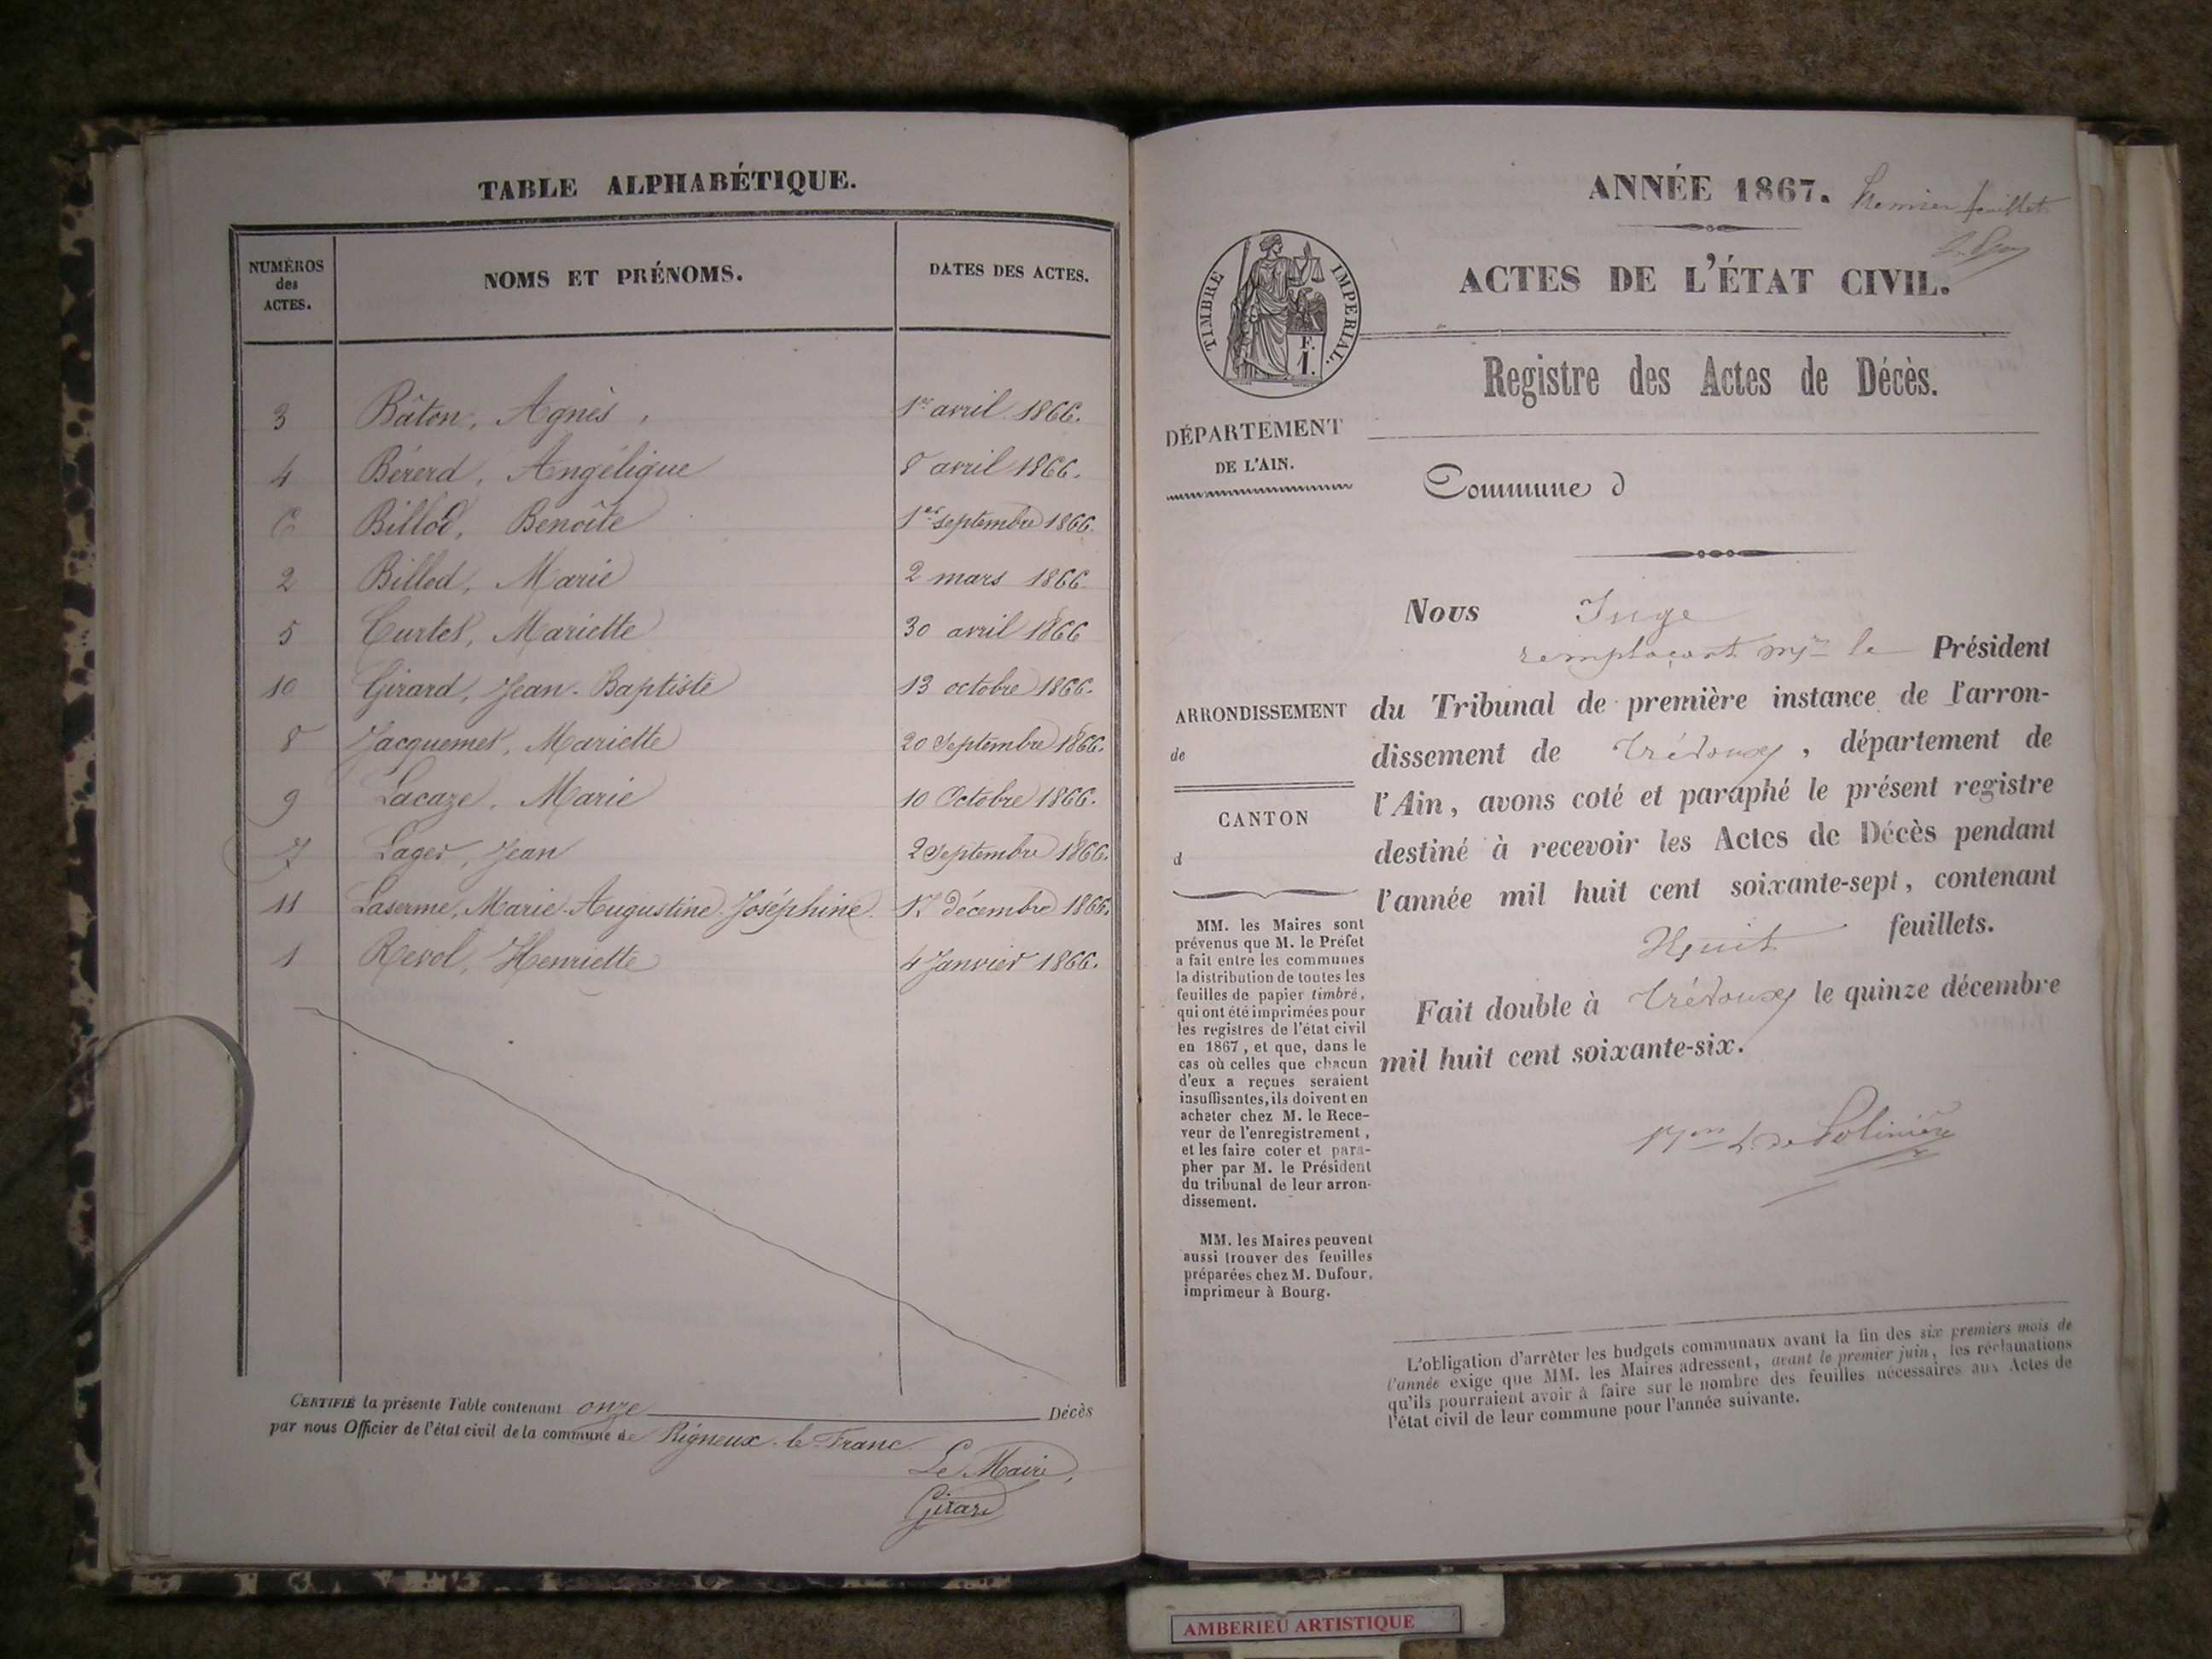 TABLE ALPHABÉTIQUE.
NUMÉROS des ACTES.
NOMS ET PRÉNOMS.
DATES DES ACTES.
3 Bâton, Agnès, 1er avril 1866.
4 Bérerd, Angélique 8 avril 1866.
6 Billod, Benoîte 1er septembre 1866.
2 Billod, Marie 2 mars 1866
5 Curtet, Mariette 30 avril 1866
10 Girard, Jean-Baptiste 13 octobre 1866.
8 Jacquemet, Mariette 20 Septembre 1866.
9 Lacaze, Marie 10 Octobre 1866.
7 Lager, Jean 2 Septembre 1866.
11 Laserme, Marie-Augustine Joséphine. 17 décembre 1866.
1 Revol, Henriette 4 Janvier 1866.
CERTIFIÉ la présente Table contenant onze Décès
par nous Officier de l'état civil de la commune de Rigneux-le-Franc
Le Maire,
Girard
ANNÉE 1867. Premier feuillet
ACTES DE L'ÉTAT CIVIL.
TIMBRE IMPERIAL.
F.
1.
Registre des Actes de Décès.
DÉPARTEMENT
DE L'AIN.
Commune d
Nous Juge
remplaçant Mr le Président
du Tribunal de première instance de l'arron-
dissement de Trévoux, département de
l'Ain, avons coté et paraphé le présent registre
destiné à recevoir les Actes de Décès pendant
l'année mil huit cent soixante-sept, contenant
Huit feuillets.
Fait double à Trévoux le quinze décembre
mil huit cent soixante-six.
de Polinière
ARRONDISSEMENT
de
CANTON
d
MM. les Maires sont
prévenus que M. le Préfet
a fait entre les communes
la distribution de toutes les
feuilles de papier timbré,
qui ont été imprimées pour
les registres de l'état civil
en 1867, et que, dans le
cas où celles que chacun
d'eux a reçues seraient
insuffisantes, ils doivent en
acheter chez M. le Rece-
veur de l'enregistrement,
et les faire coter et para-
pher par M. le Président
du tribunal de leur arron-
dissement.
MM. les Maires peuvent
aussi trouver des feuilles
préparées chez M. Dufour,
imprimeur à Bourg.
L'obligation d'arrêter les budgets communaux avant la fin des six premiers mois de
l'année exige que MM. les Maires adressent, avant le premier juin, les réclamations
qu'ils pourraient avoir à faire sur le nombre des feuilles nécessaires aux Actes de
l'état civil de leur commune pour l'année suivante.
AMBERIEU ARTISTIQUE